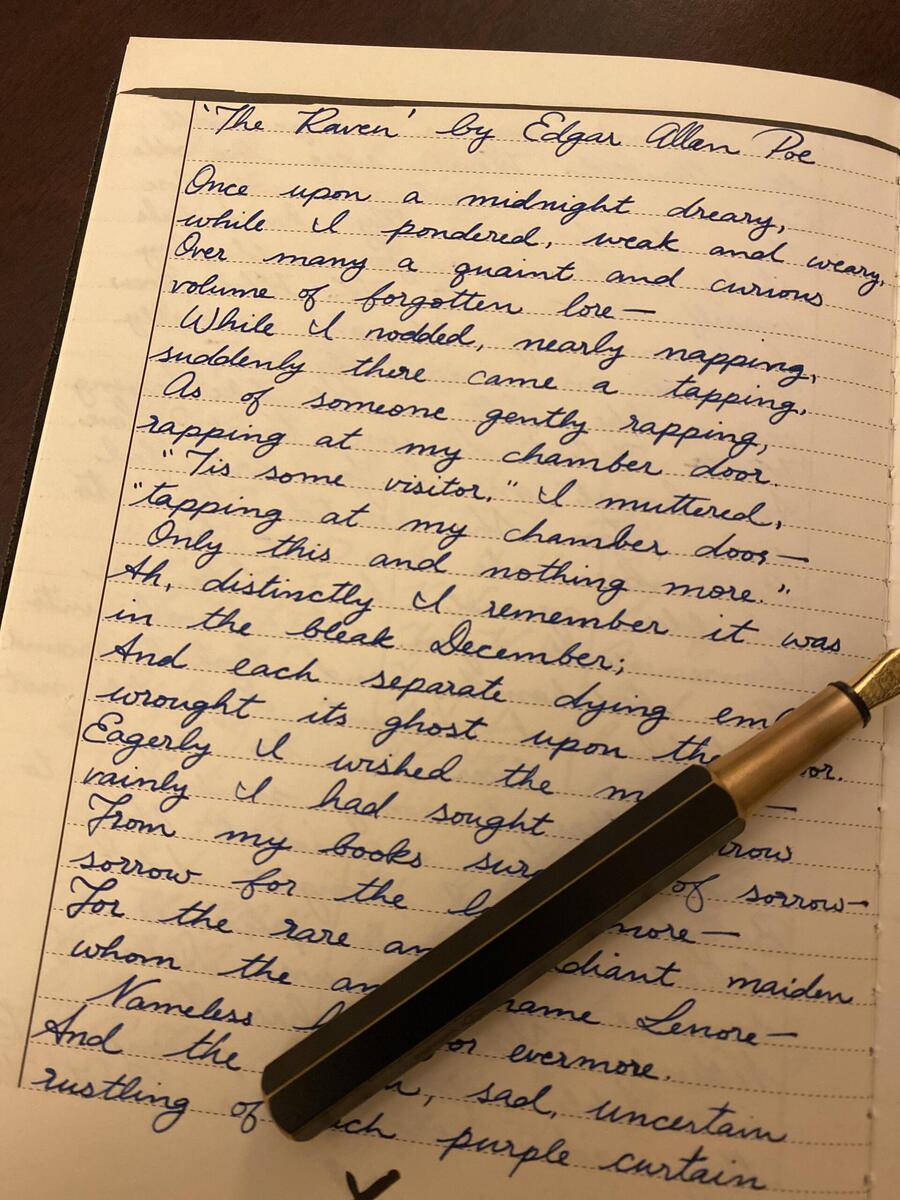 'The Raven' by Edgar Allan Poe
Once upon a midnight dreary,
while I pondered, weak and weary,
Over many a quaint and curious
volume of forgotten lore—
While I nodded, nearly napping,
suddenly there came a tapping,
As of someone gently rapping,
rapping at my chamber door.
"'Tis some visitor," I muttered,
"tapping at my chamber door—
Only this and nothing more."
Ah, distinctly I remember it was
in the bleak December;
And each separate dying
wrought its ghost upon the
Eagerly I wished the
vainly I had sought
From my books of sorrow—
sorrow for the
For the rare radiant maiden
whom the name Lenore—
Nameless for evermore.
And the sad, uncertain
rustling of purple curtain